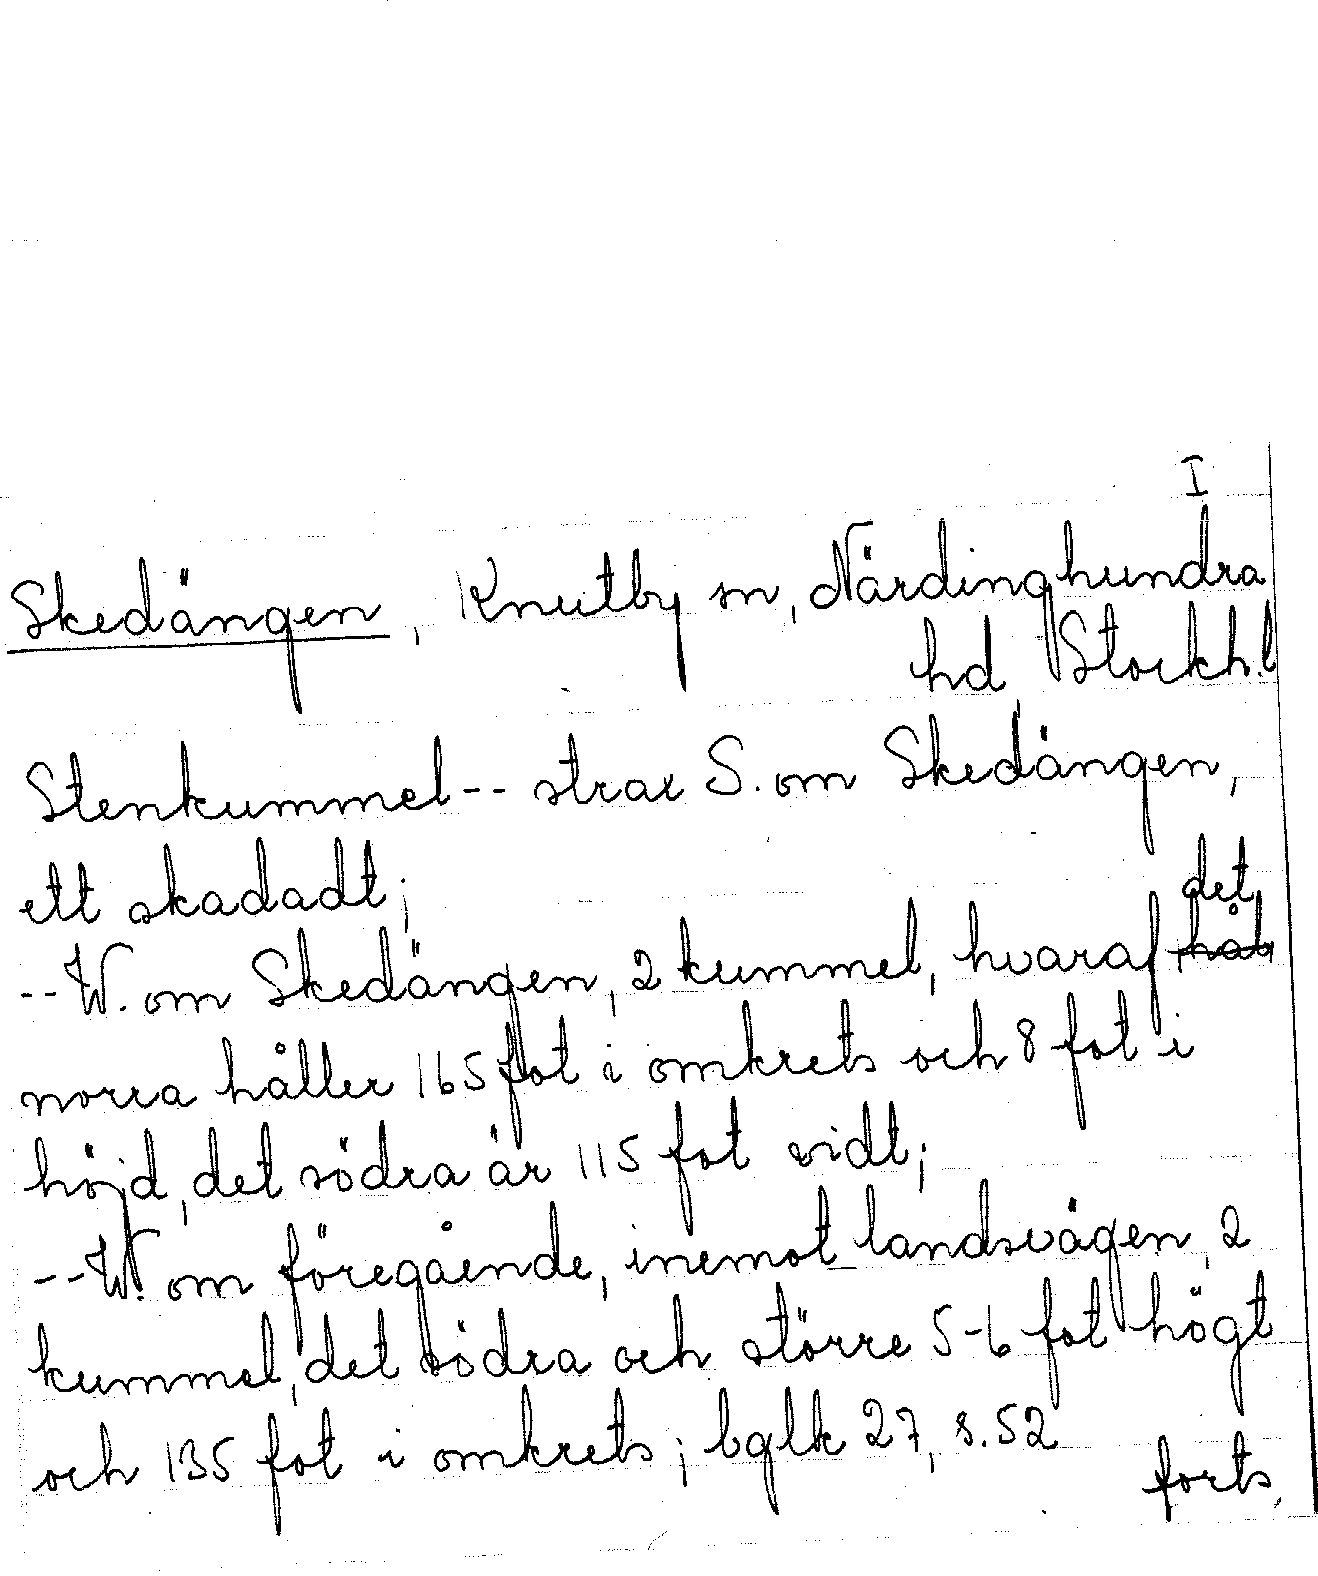 I
Skedängen, Knutby sn, Närdinghundra
hd, Stockh.l
Stenkummel -- strax S. om Skedängen,
ett skadadt;
det
-- W. om Skedängen, 2 kummel, hvaraf hål
norra håller 165 fot i omkrets och 8 fot i
höjd, det södra är 115 fot vidt;
-- W. om föregående, inemot landsvägen, 2
kummel, det södra och större 5-6 fot högt
och 135 fot i omkrets; bglk 27, s. 52
forts.